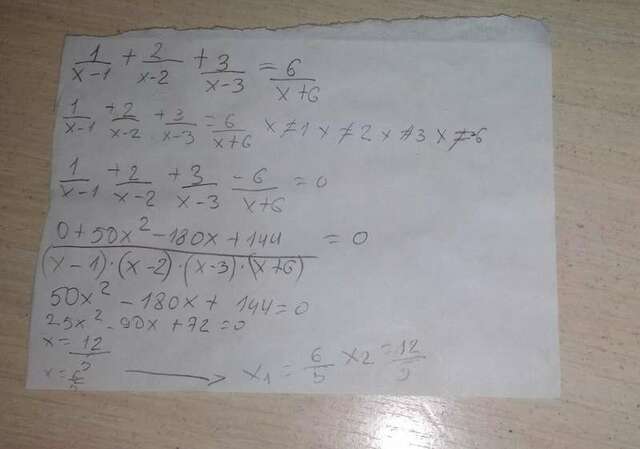 1/(x-1) + 2/(x-2) + 3/(x-3) = 6/(x+6)
1/(x-1) + 2/(x-2) + 3/(x-3) = 6/(x+6) x≠1 x≠2 x≠3 x≠-6
1/(x-1) + 2/(x-2) + 3/(x-3) - 6/(x+6) = 0
(0+50x²-180x+144)/((x-1)·(x-2)·(x-3)·(x+6)) = 0
50x²-180x+144=0
25x²-90x+72=0
x=12/5
x=6/5 → x₁=6/5 x2=12/5